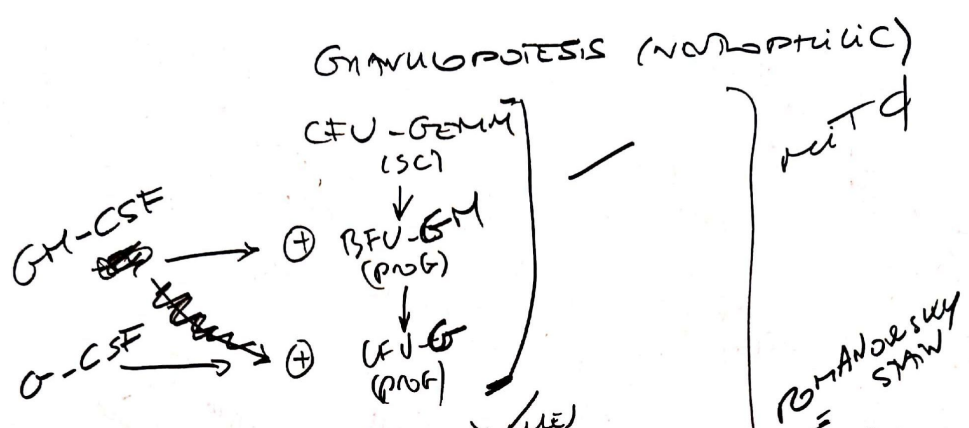 GRANULOPOIESIS (NEUTROPHILIC)
CFU-GEMM
(SC)
GM-CSF
⊕ BFU-GM
(PROG)
G-CSF
⊕ CFU-G
(PROG)
ROMANOWSKY
STAIN